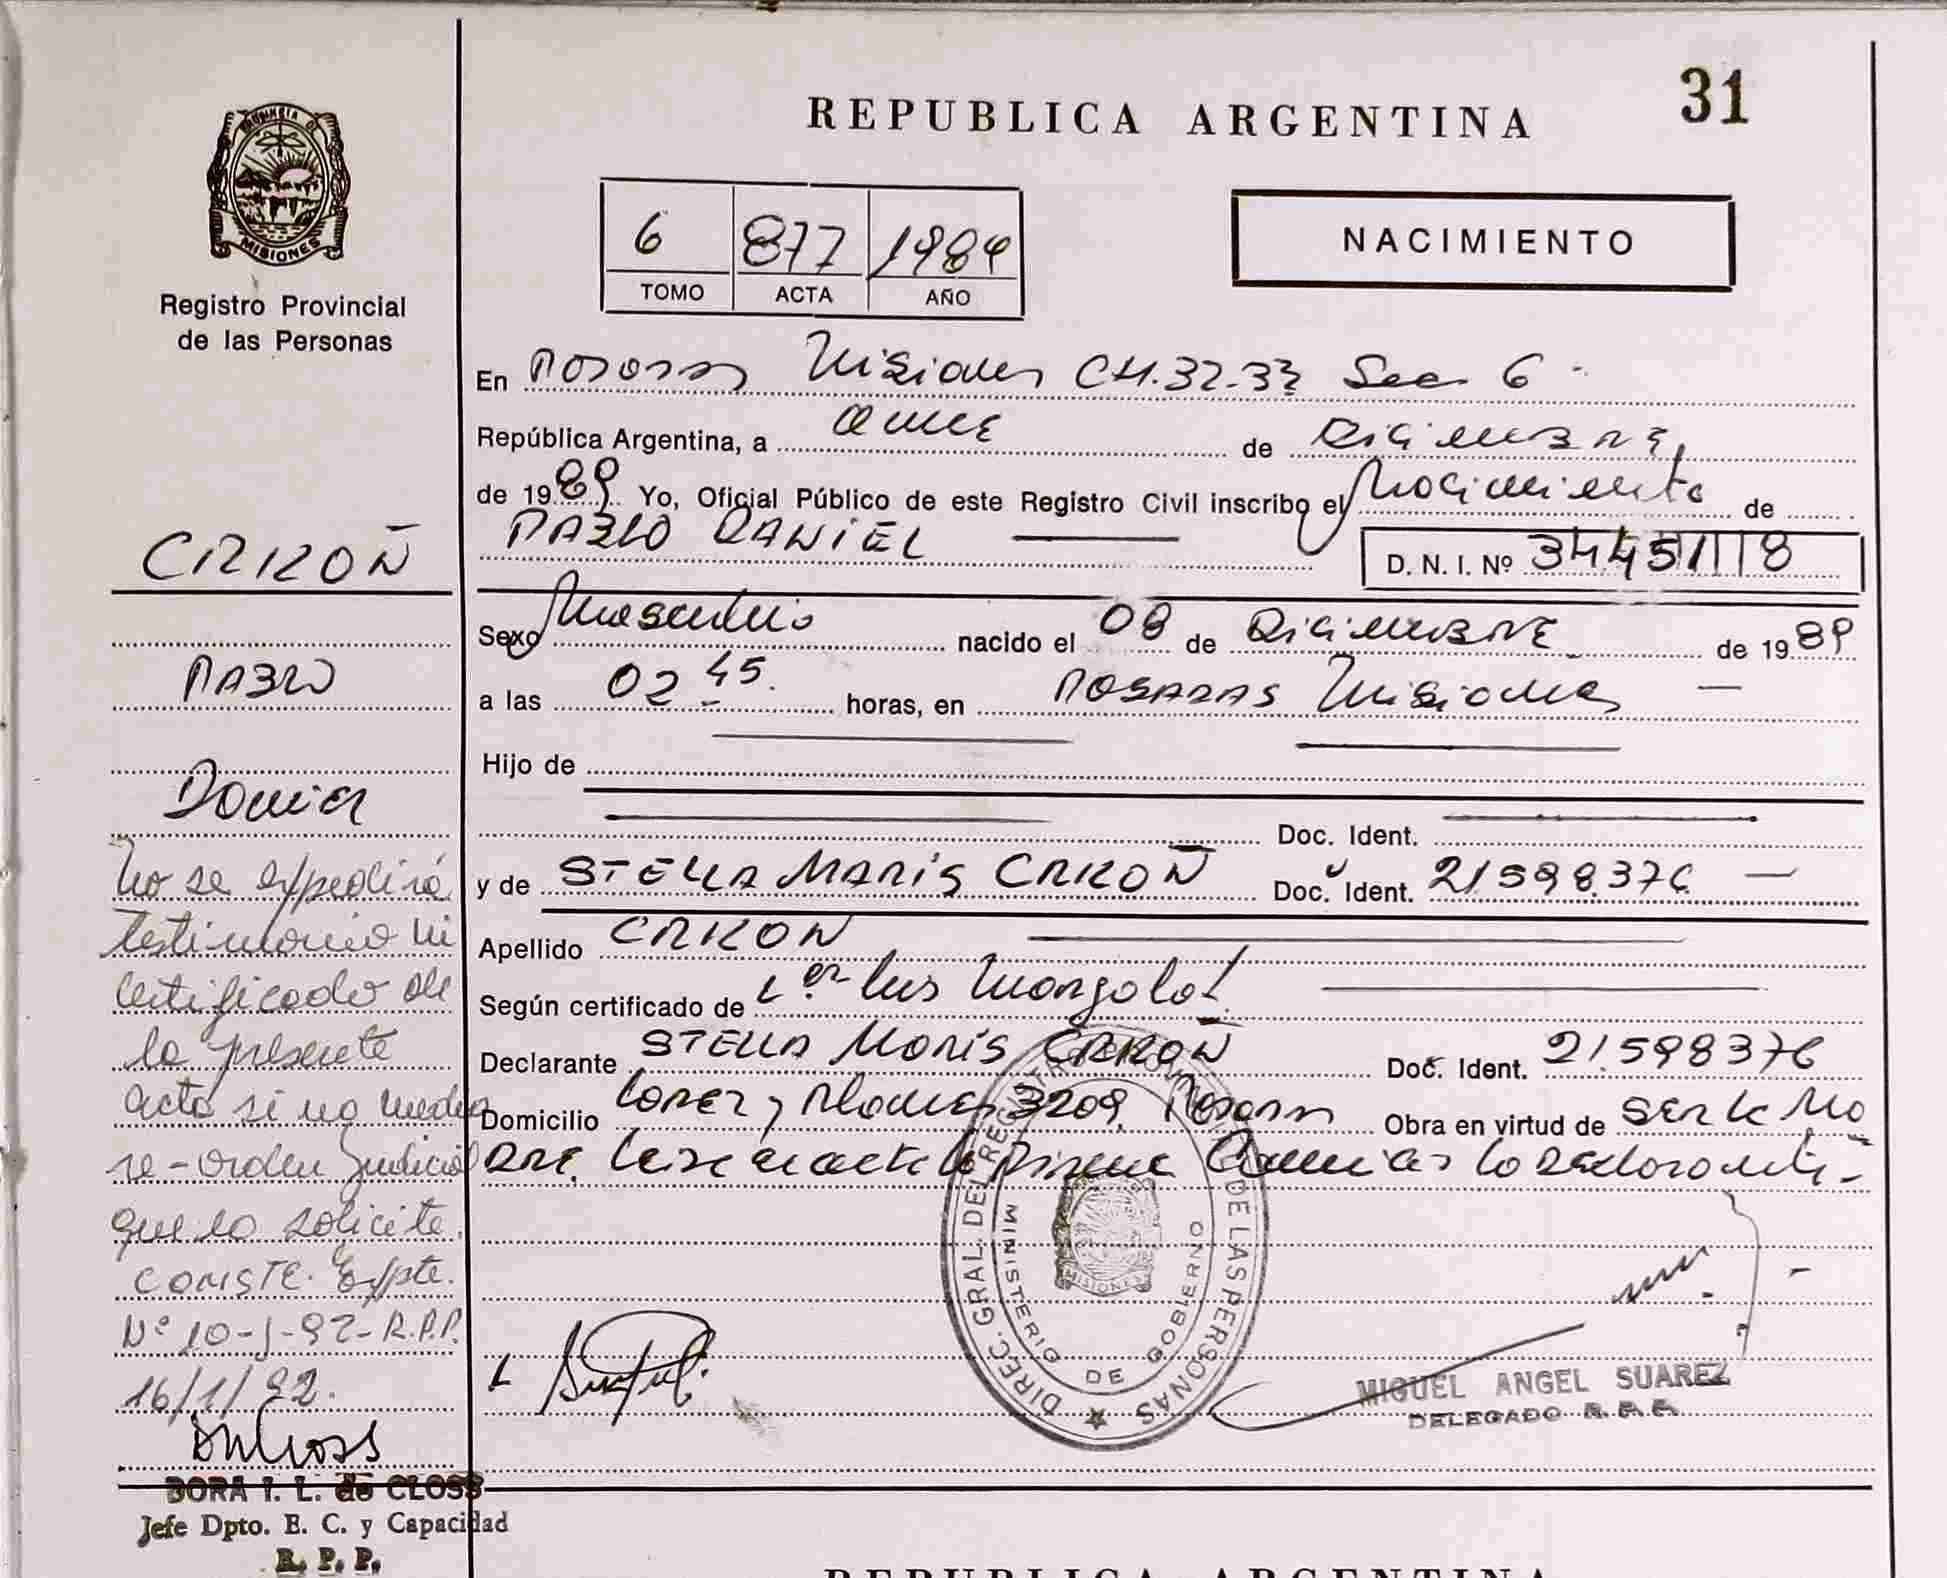 31
REPUBLICA ARGENTINA
NACIMIENTO
6 877 1989
TOMO ACTA AÑO
PROVINCIA DE
MISIONES
Registro Provincial
de las Personas
En Posadas Misiones CH.32-33 Sec 6
República Argentina, a once de Diciembre
de 1989 Yo, Oficial Público de este Registro Civil inscribo el Nacimiento de
PABLO DANIEL
D. N. I. Nº 34451118
Sexo Masculino nacido el 08 de Diciembre de 1989
a las 02 45. horas, en POSADAS Misiones
Hijo de
Doc. Ident.
y de STELLA MARIS Doc. Ident. 21.598.376
Apellido
Según certificado de
Declarante STELLA MARIS Doc. Ident. 21.598376
Domicilio Lopez y Planes 3209, Posadas Obra en virtud de SER LA MA
DRE
DIREC. GRAL. DEL REGISTRO PROVINCIAL DE LAS PERSONAS
MINISTERIO DE GOBIERNO
MISIONES
MIGUEL ANGEL SUAREZ
DELEGADO R. P. P.
PABLO
Daniel
No se expedirá
testimonio ni
certificado de
la presente
acta si no media
re-orden Judicial
que lo solicite.
CONSTE. Expte.
Nº 10-J-92-R.P.P.
16/1/92.
DORA I. L. de CLOSS
Jefe Dpto. E. C. y Capacidad
R. P. P.
REPUBLICA ARGENTINA